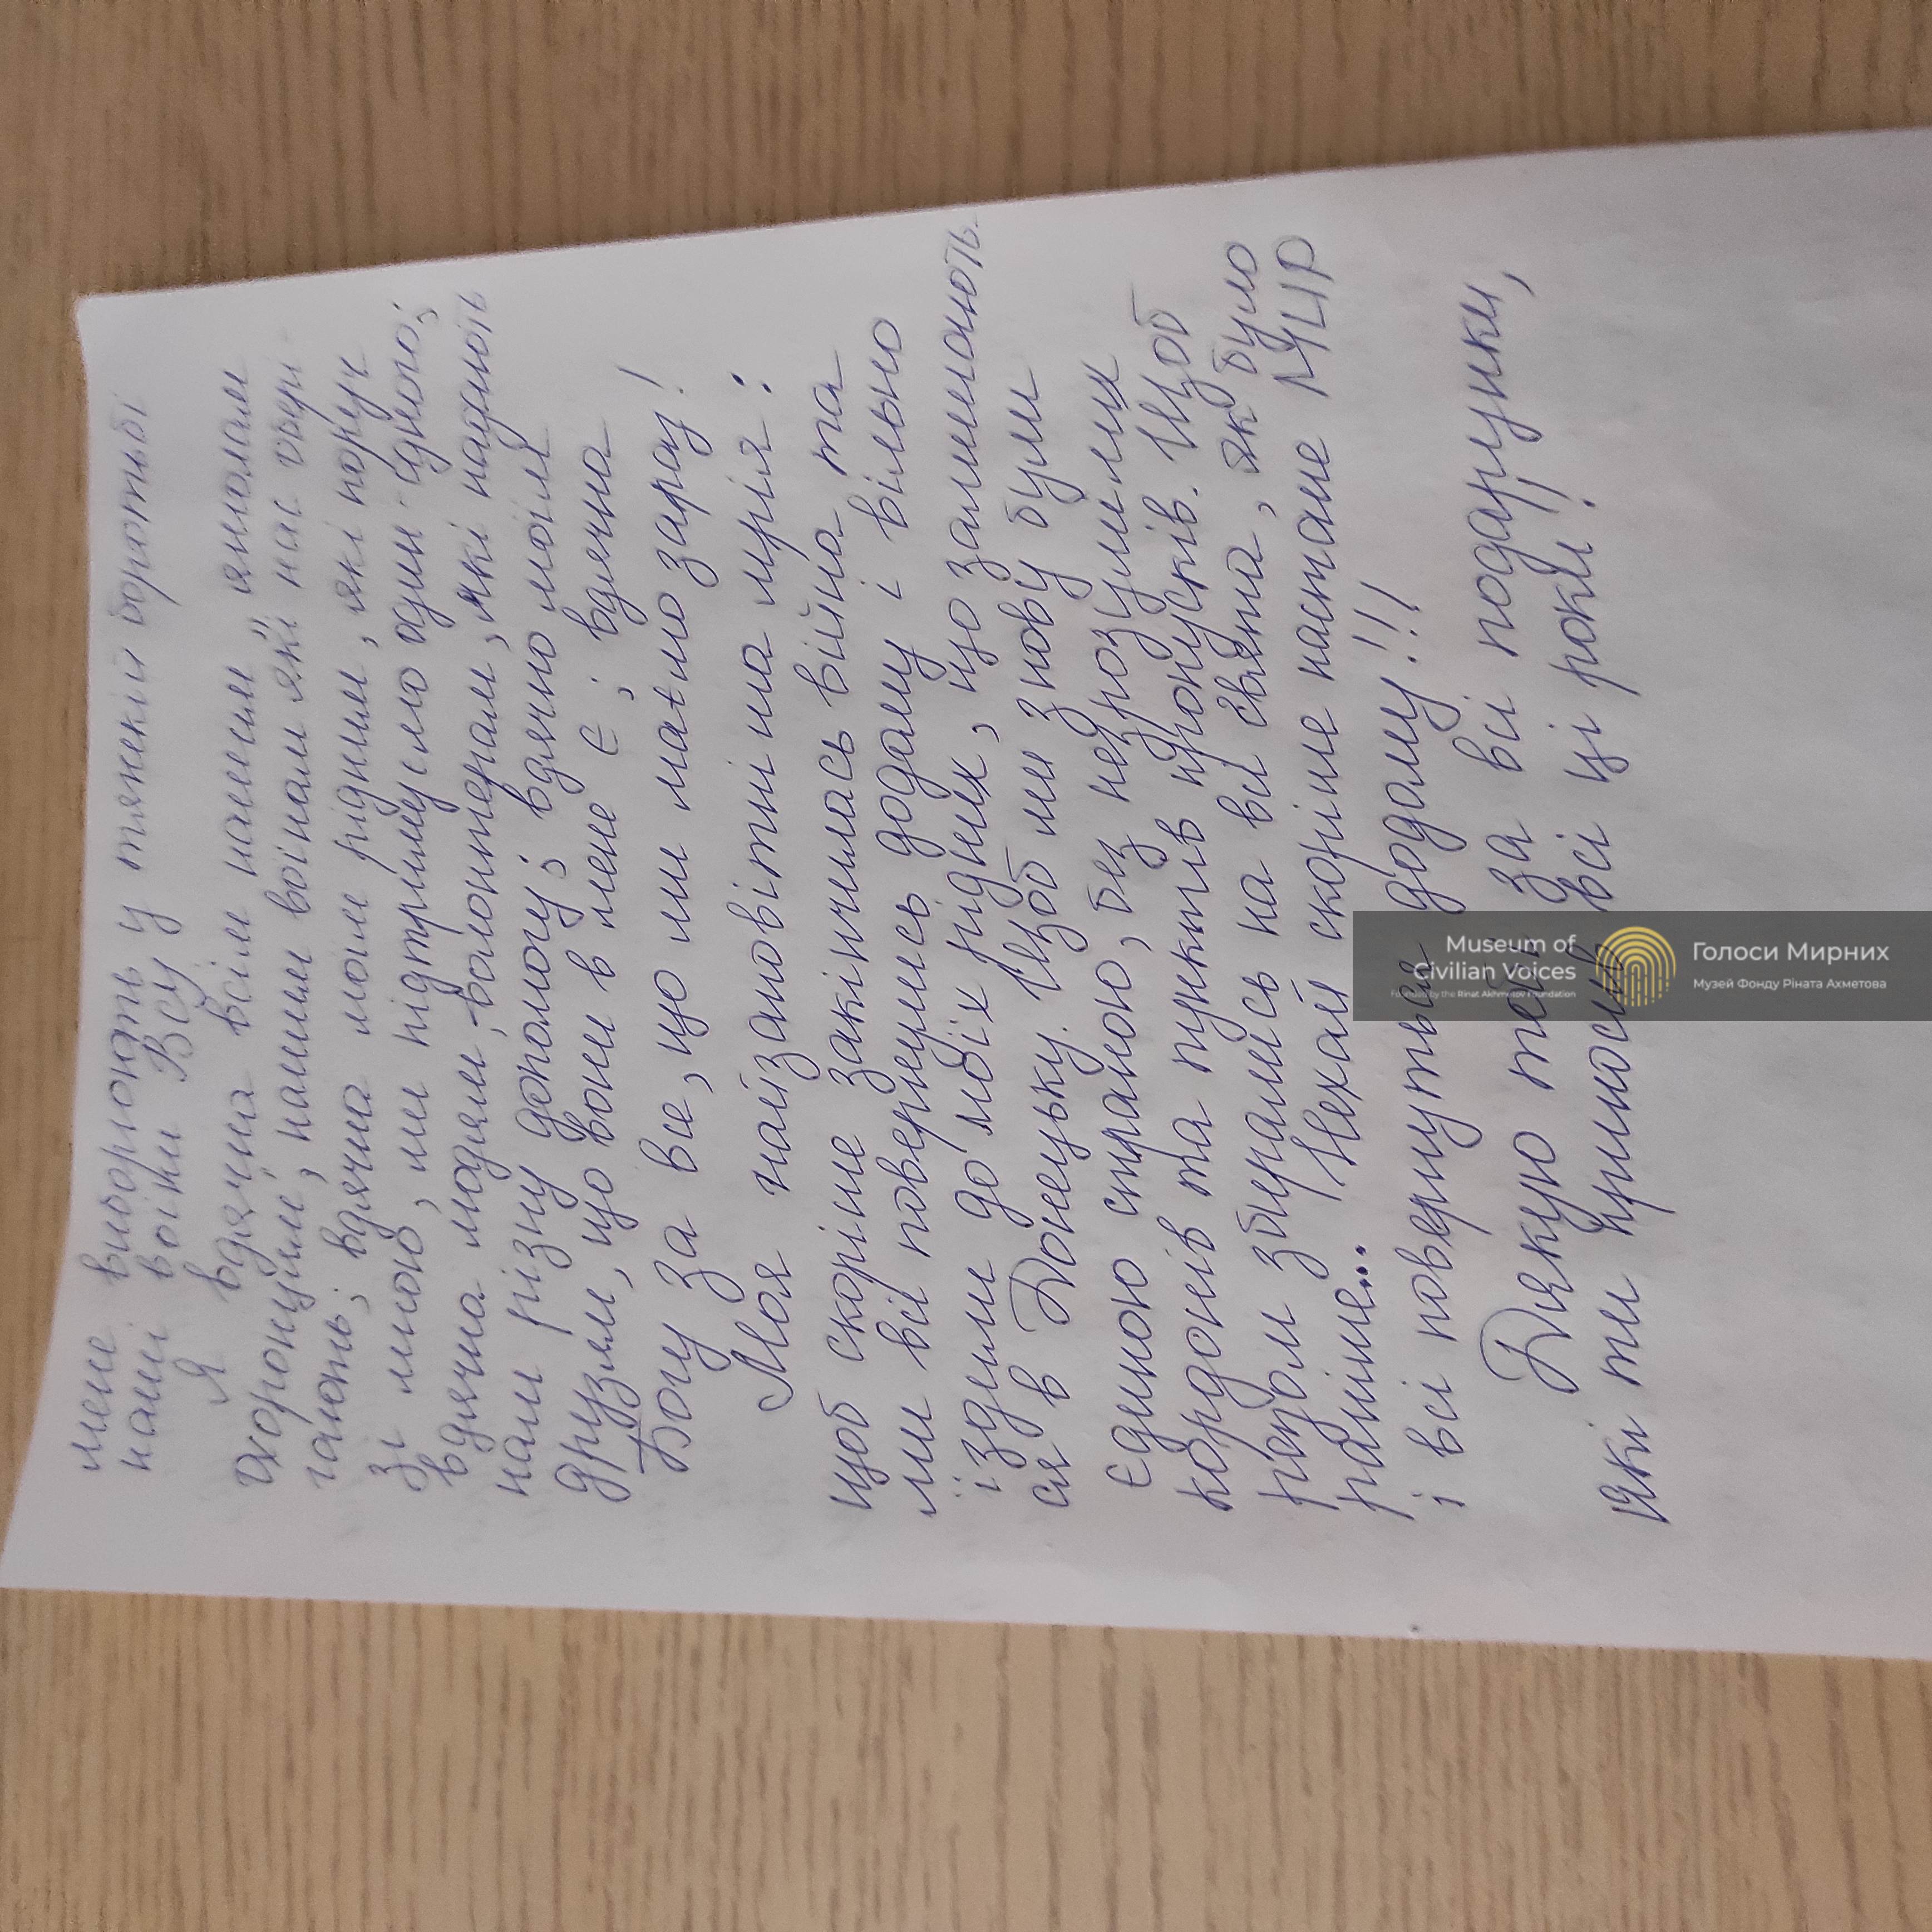 мене виборюють у тяжкій боротьбі
наші воїни ВСУ
Я вдячна всім нашим "янголам
охоронцям", нашим воїнам які нас обері-
гають; вдячна моїм рідним, які поруч
зі мною, ми підтримуємо один-одного;
вдячна людям-волонтерам, які надають
нам різну допомогу; вдячно моїм
друзям, що вони в мене є; вдячна
Богу за все, що ми маємо зараз!
Моя найзаповітніша мрія:
щоб скоріше закінчилась війна та
ми всі повернулись додому і вільно
їздили до моїх рідних, що залишають-
ся в Донецьку. Щоб ми знову були
єдиною страною, без незрозумілих
кордонів та пунктів пропусків. Щоб
разом збирались на всі свята, як було
раніше... Нехай скоріше настане МИР
і всі повернуться додому!!!
Дякую тобі за всі подарунки,
які ти приносив всі ці роки!
Museum of
Civilian Voices
Founded by the Rinat Akhmetov Foundation
Голоси Мирних
Музей Фонду Ріната Ахметова